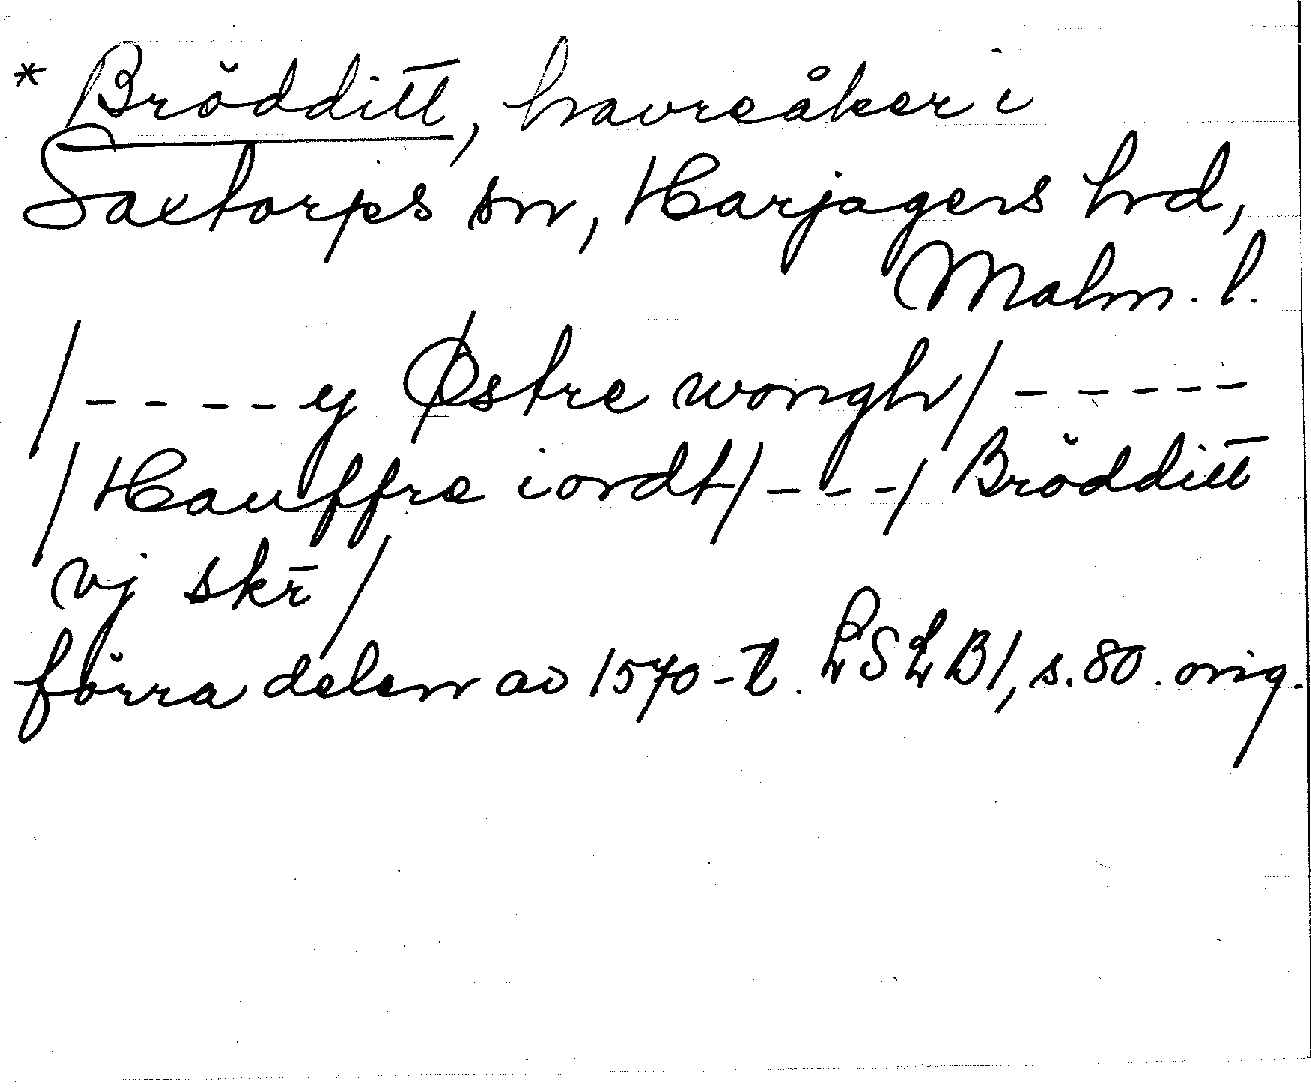 * Brödditt, havreåker i
Saxtorps sn, Harjagers hd,
Malm. l.
/ - - - - y Østre wongh / - - - - -
/ Hauffre iordt / - - - / Brödditt
vj skr̄ /
förra delen av 1570-t. LSLB1, s. 80. orig.